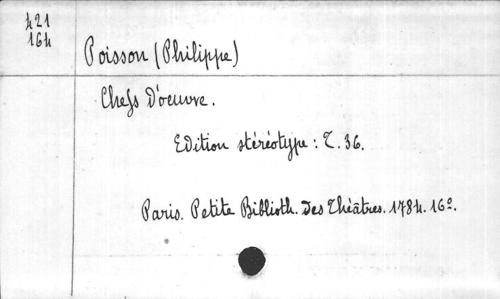 421
164
Poisson (Philippe)
Chefs d'oeuvre.
Edition stéréotype : T. 36.
Paris. Petite Biblioth. des Théâtres. 1784. 16º.